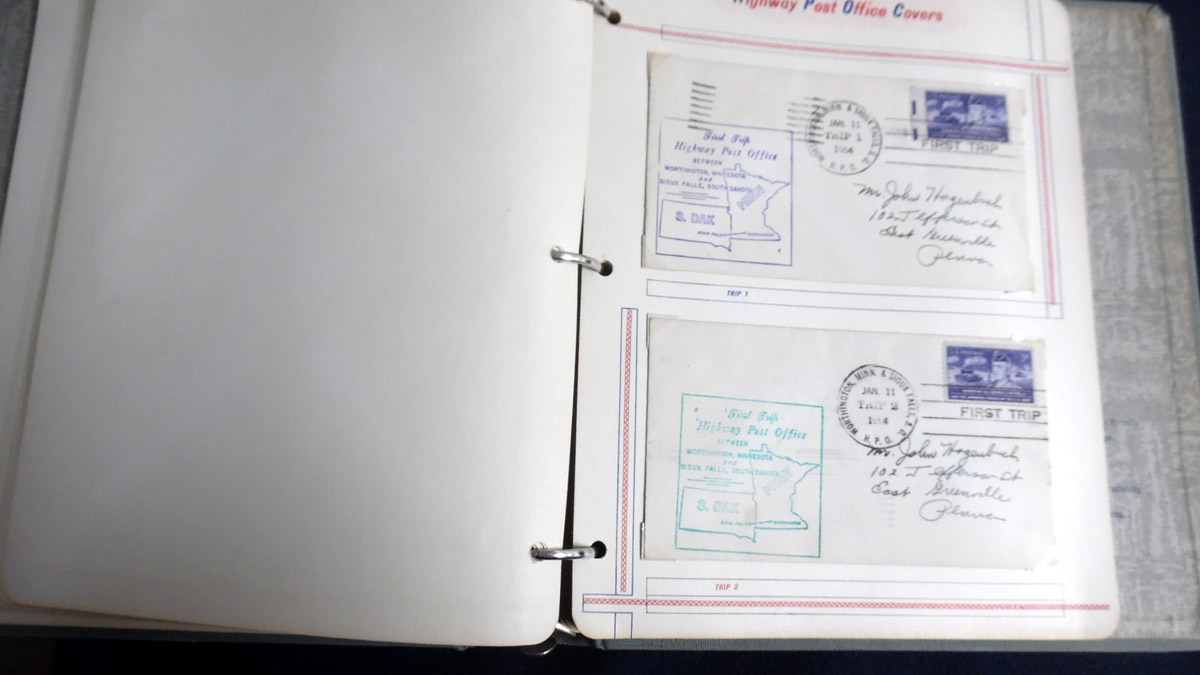 Highway Post Office Covers
WORTHINGTON, MINN. & SIOUX FALLS, S. D.
JAN. 11
TRIP 1
1954
H. P. O.
FIRST TRIP
First Trip
Highway Post Office
BETWEEN
WORTHINGTON, MINNESOTA
and
SIOUX FALLS, SOUTH DAKOTA
MINN
S. DAK
SIOUX FALLS
WORTHINGTON
Mr. John Hagenbuch
102 Jefferson St
East Greenville
Penna
TRIP 1
U.S. POSTAGE
3¢
WORTHINGTON, MINN. & SIOUX FALLS, S. D.
JAN. 11
TRIP 2
1954
H. P. O.
FIRST TRIP
First Trip
Highway Post Office
BETWEEN
WORTHINGTON, MINNESOTA
and
SIOUX FALLS, SOUTH DAKOTA
S. DAK
SIOUX FALLS
WORTHINGTON
Mr. John Hagenbuch
102 Jefferson St
East Greenville
Penna
TRIP 2